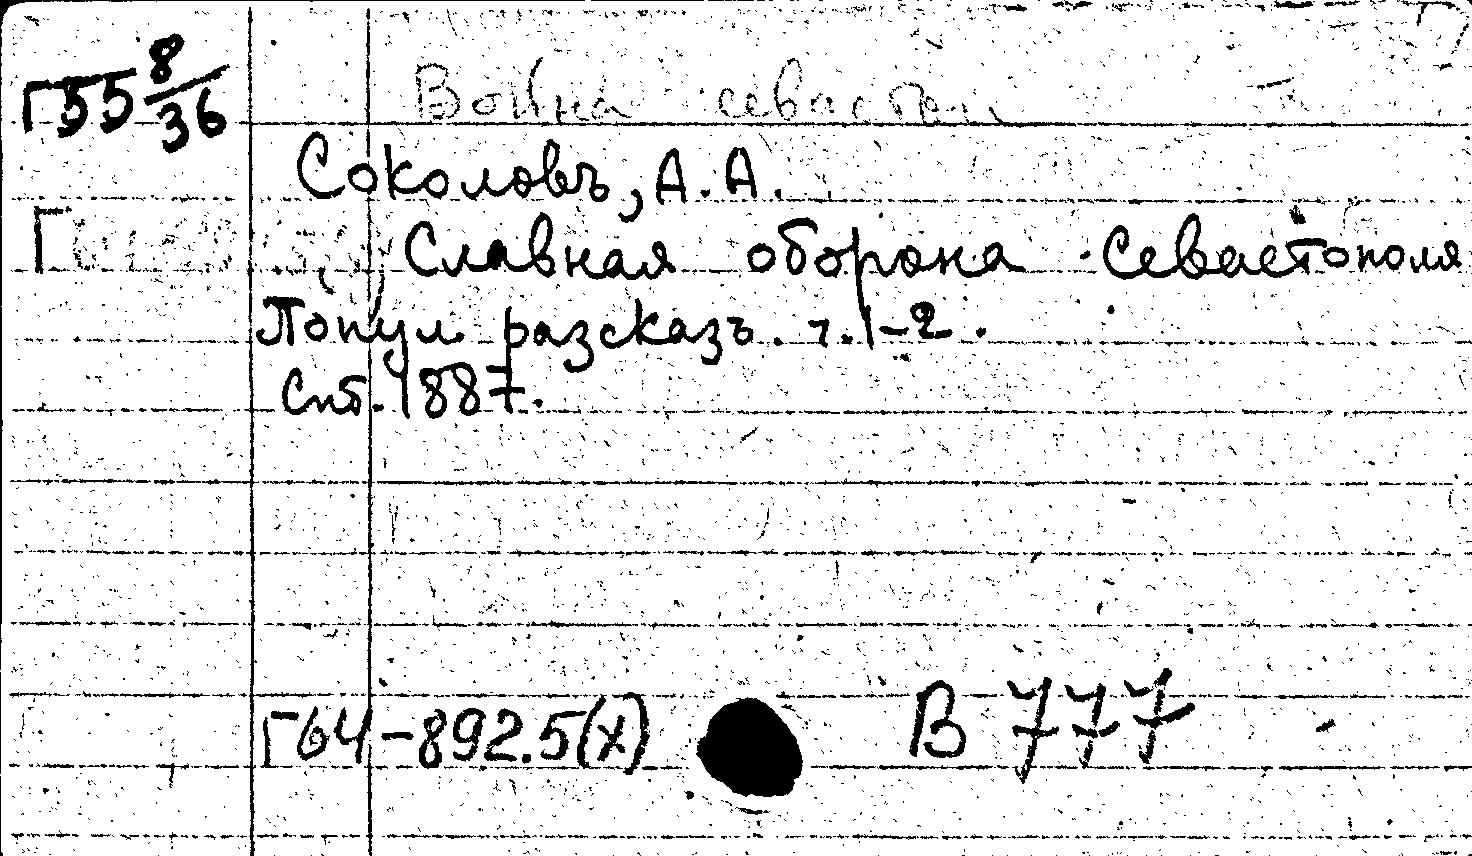 Г55 8/36
Война севастоп
Соколовъ, А. А.
Г
Славная оборона Севастополя
Попул разсказъ. ч. 1-2.
Спб. 1887.
Г64-892.5(х)
В 777